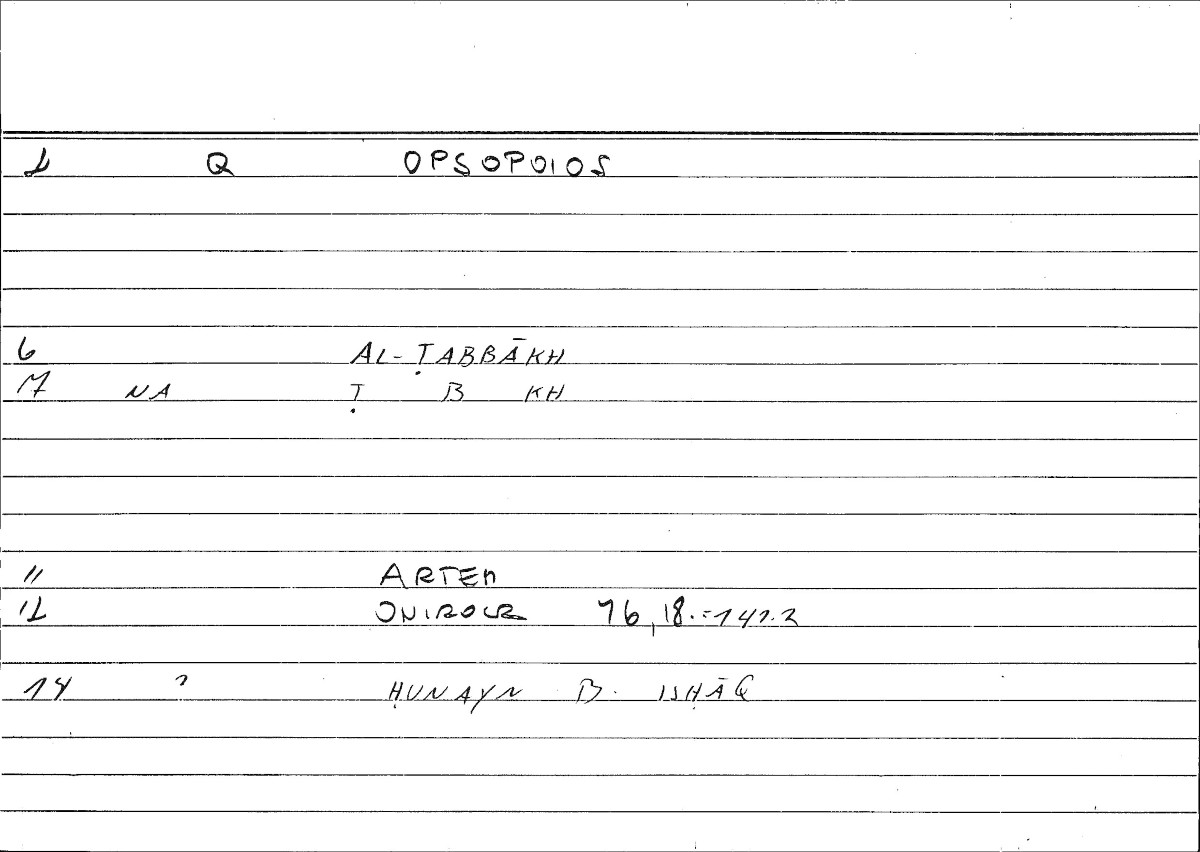 1 Q OPSOPOIOS
6 AL-ṬABBĀKH
7 NA Ṭ B KH
11 ARTEM
12 ONIROCR 76,18.=141.2
14 ? ḤUNAYN B. ISḤĀQ